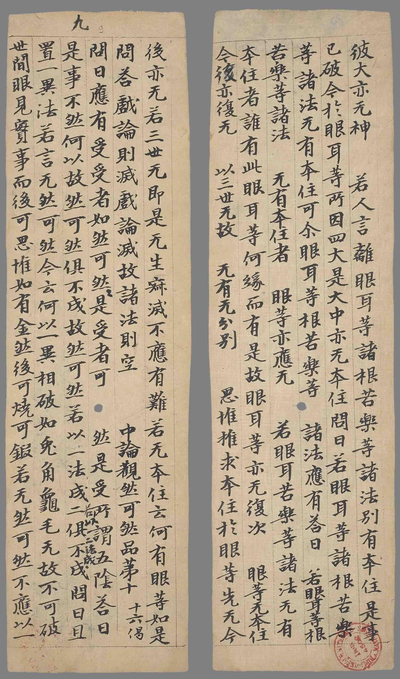 彼大亦无神　若人言離眼耳等諸根苦樂等諸法別有本住是事
已破今於眼耳等所因四大是大中亦无本住問曰若眼耳等諸根苦樂
等諸法无有本住可尒眼耳等根苦樂等　諸法應有荅曰　若眼耳等根
苦樂等諸法　无有本住者　眼等亦應无　若眼耳苦樂等諸法无有
本住者誰有此眼耳等何緣而有是故眼耳等亦无復次　眼等无本住
今後亦復无　以三世无故　无有无分別　思惟推求本住於眼等先无今
九
後亦无若三世无即是无生寂滅不應有難若无本住云何有眼等如是
問荅戲論則滅戲論滅故諸法則空　中論觀然可然品第十　十六偈
問曰應有受受者如然可然然是受者可　然是受所謂五陰荅曰
是事不然何以故然可然俱不成故然可然若以一法成若以二法成二俱不成問曰且
置一異法若言无然可然今云何以一異相破如兔角龜毛无故不可破
世間眼見實事而後可思惟如有金然後可燒可鍛若无然可然不應以一